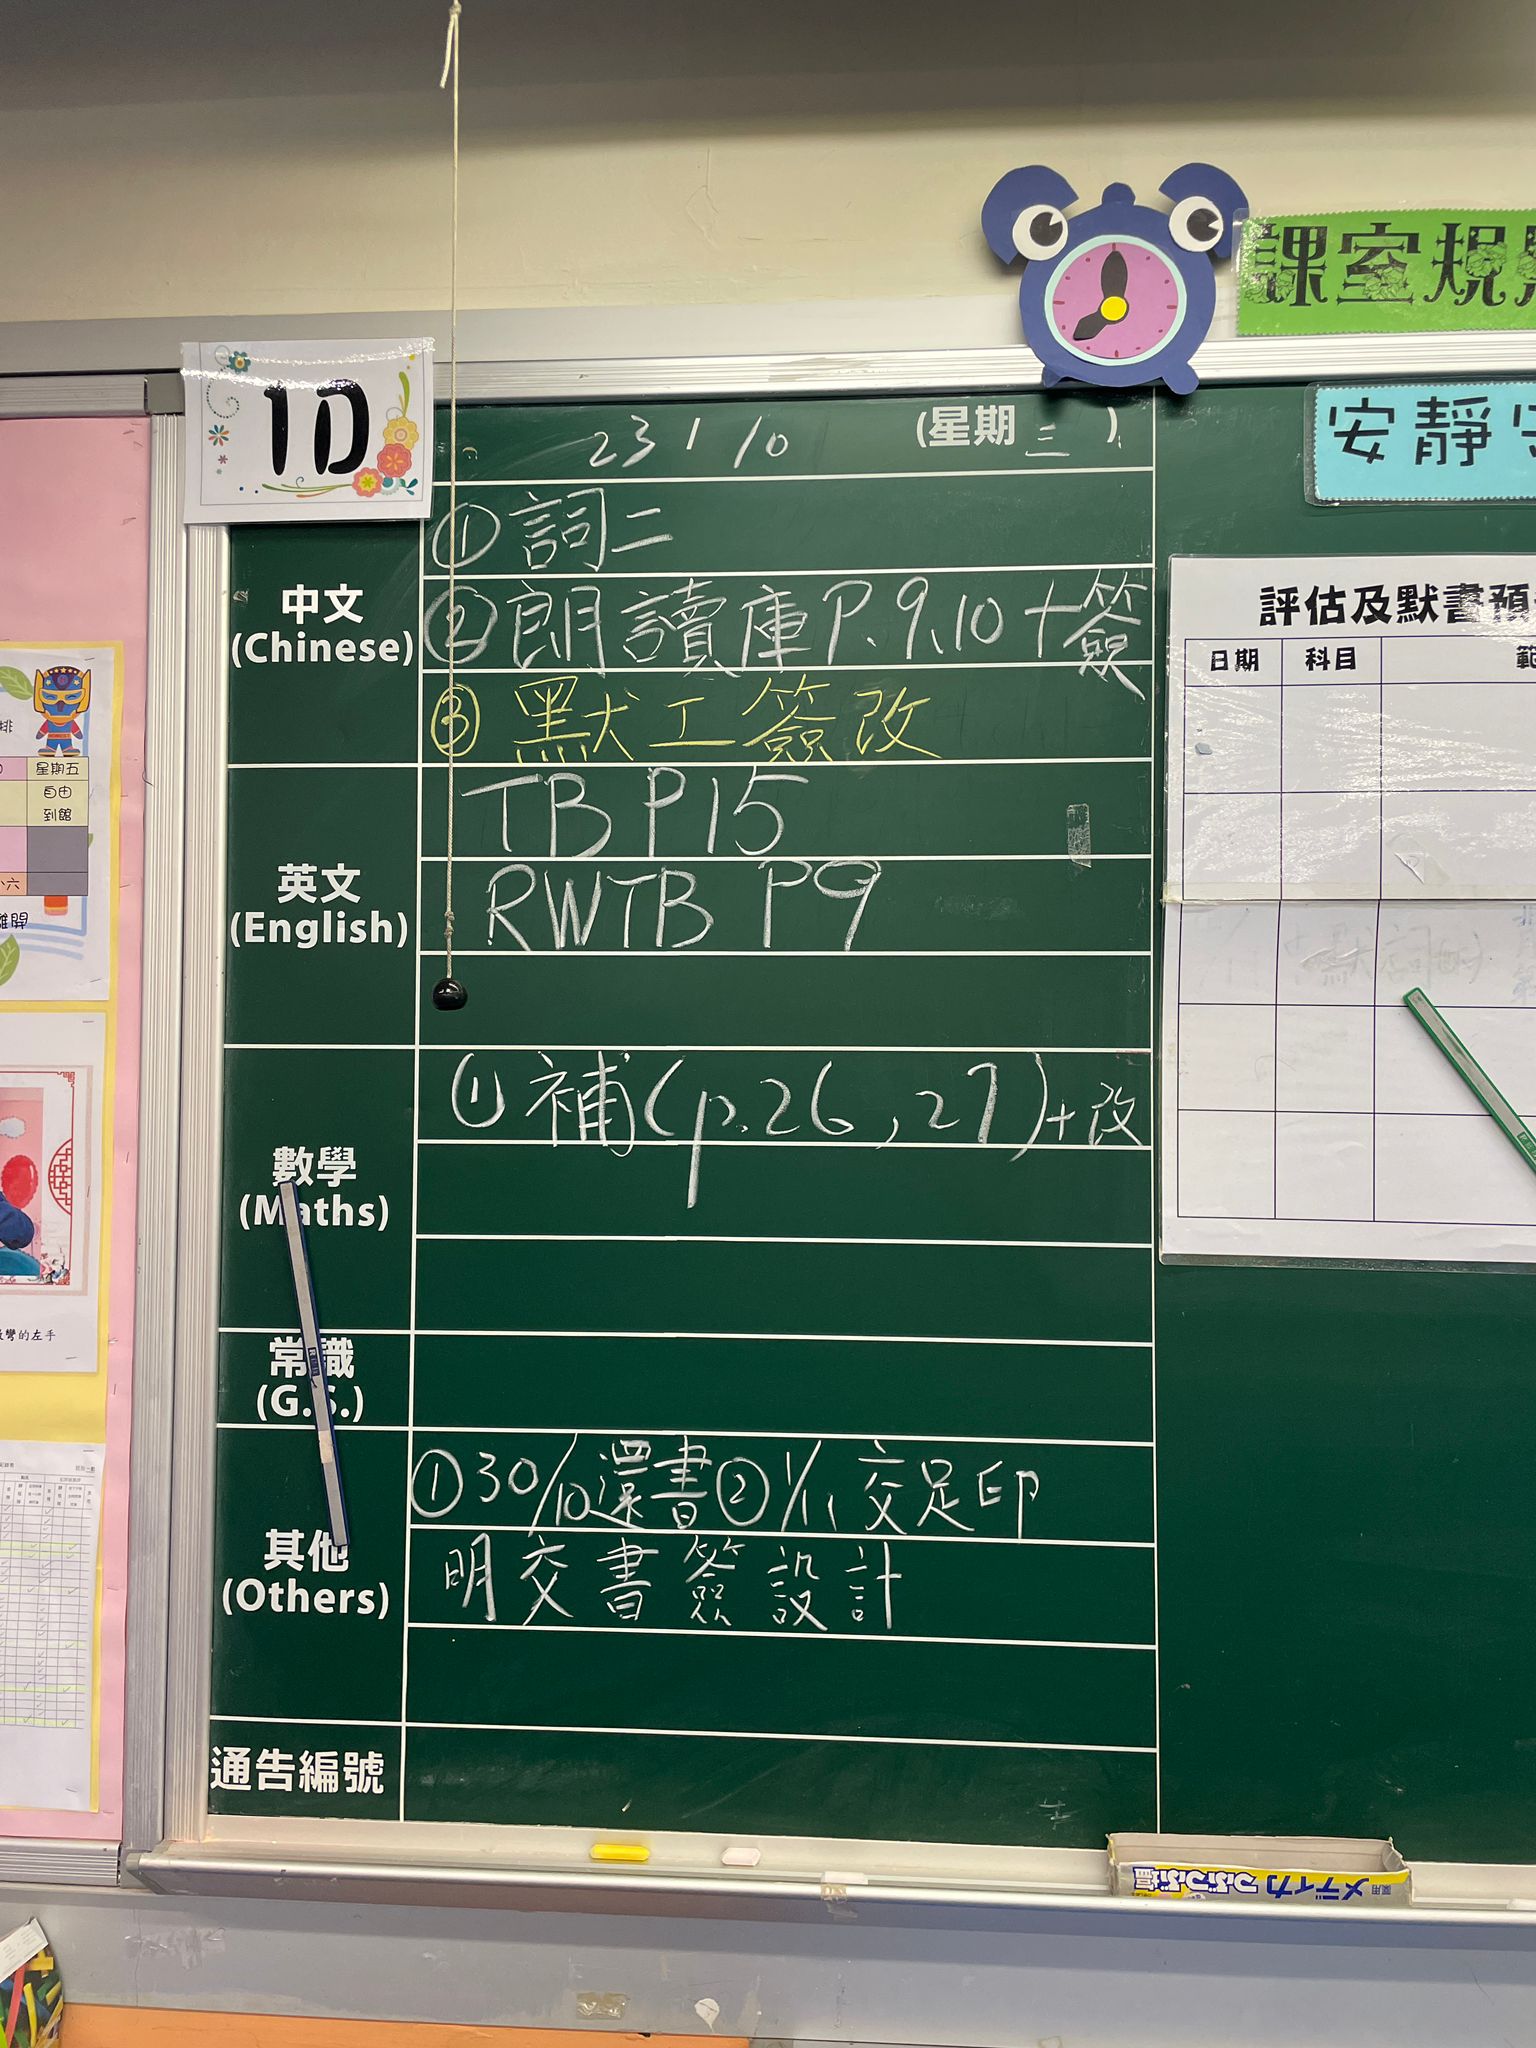 課室規
1D
安靜
23 / 10 (星期三)
中文
(Chinese)
① 詞二
② 朗讀庫P.9,10+簽
③ 默工簽改
英文
(English)
TB P15
RWTB P9
數學
(Maths)
① 補(p.26,27)+改
常識
(G.S.)
其他
(Others)
①30/10還書②1/11交足印
明交書簽設計
通告編號
評估及默書預
日期 科目 範
星期五
自由
到館
彎的左手
メディカ つぶつぶ塩